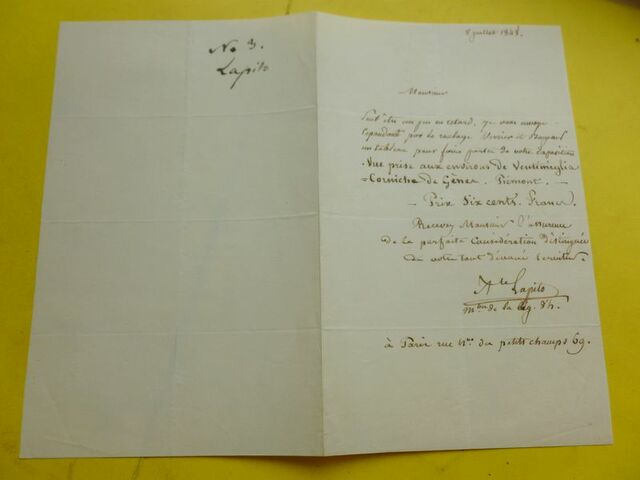 No 3.
Lapito
8 juillet 1848.
Monsieur
Peut être un peu en retard, je vous envoye
cependant par le roulage et
un tableau pour faire partie de votre Exposition
Vue prise aux environs de Ventimiglia
Corniche de Gênes. Piémont. —
— Prix Six cents. Francs.
Recevez Monsieur l'assurance
de la parfaite Considération distinguée
de votre tout dévoué serviteur.
Ate Lapito
mbre de la lég. d'h.
à Paris rue Nve des petits champs 69.